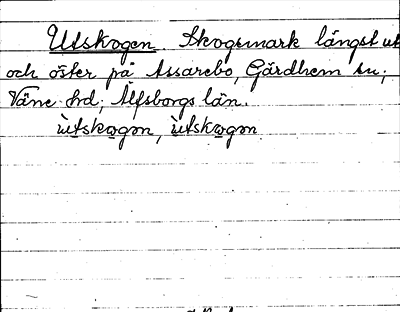 Utskogen. Skogsmark längst ut
och öster på Assarebo, Gärdhem sn,
Väne hd, Älfsborgs län.
ùtskogɘn, ùtskogɘn